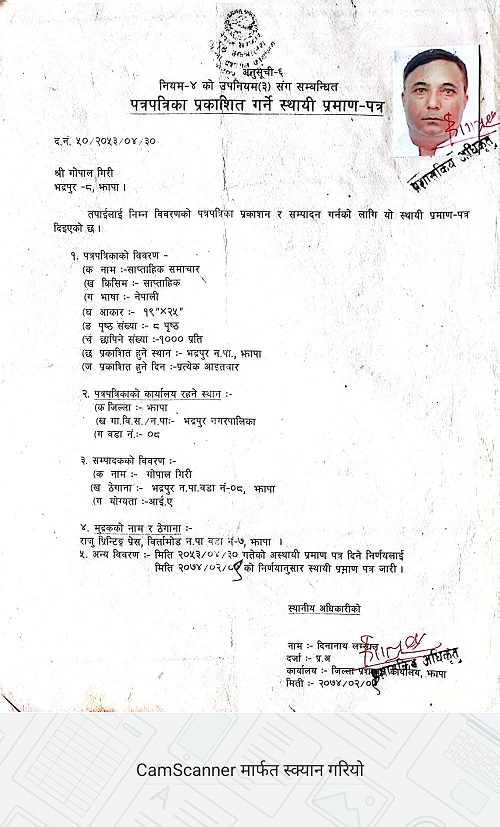 अनुसूची-६
नियम-४ को उपनियम(३) संग सम्बन्धित
पत्रपत्रिका प्रकाशित गर्ने स्थायी प्रमाण-पत्र
द.नं. ५०/२०५३/०४/३०
प्रशासकिय अधिकृत
श्री गोपाल गिरी
भद्रपुर -८, झापा ।
तपाईलाई निम्न विवरणको पत्रपत्रिका प्रकाशन र सम्पादन गर्नको लागि यो स्थायी प्रमाण-पत्र
दिइएको छ ।
१. पत्रपत्रिकाको विवरण -
(क नाम :-साप्ताहिक समाचार
(ख किसिम :- साप्ताहिक
(ग भाषा :- नेपाली
(घ आकार :- १९"×२५"
(ङ पृष्ठ संख्या :- ८ पृष्ठ
(च छापिने संख्या :-१००० प्रति
(छ प्रकाशित हुने स्थान :- भद्रपुर न.पा., झापा
(ज प्रकाशित हुने दिन :-प्रत्येक आइतवार
२. पत्रपत्रिकाको कार्यालय रहने स्थान :-
(क जिल्ला :- झापा
(ख गा.वि.स./न.पाः- भद्रपुर नगरपालिका
(ग वडा नं.:- ०८
३. सम्पादकको विवरण :-
(क नाम :- गोपाल गिरी
(ख ठेगाना :- भद्रपुर न.पा.वडा नं-०८, झापा
(ग योग्यता :-आई.ए
४. मुद्रकको नाम र ठेगाना :-
राजु प्रिन्टिङ्ग प्रेस, विर्तामोड न.पा वडा नं-७, झापा ।
५. अन्य विवरण :- मिति २०५३/०४/३० गतेको अस्थायी प्रमाण पत्र दिने निर्णयलाई
मिति २०७४/०२/०९ को निर्णयानुसार स्थायी प्रमाण पत्र जारी ।
स्थानीय अधिकारीको
नाम :- दिनानाथ
दर्जा :- प्र.अ
प्रशासकिय अधिकृत
कार्यालय :- जिल्ला प्रशासन कार्यालय, झापा
मिती :- २०७४/०२/
CamScanner मार्फत स्क्यान गरियो